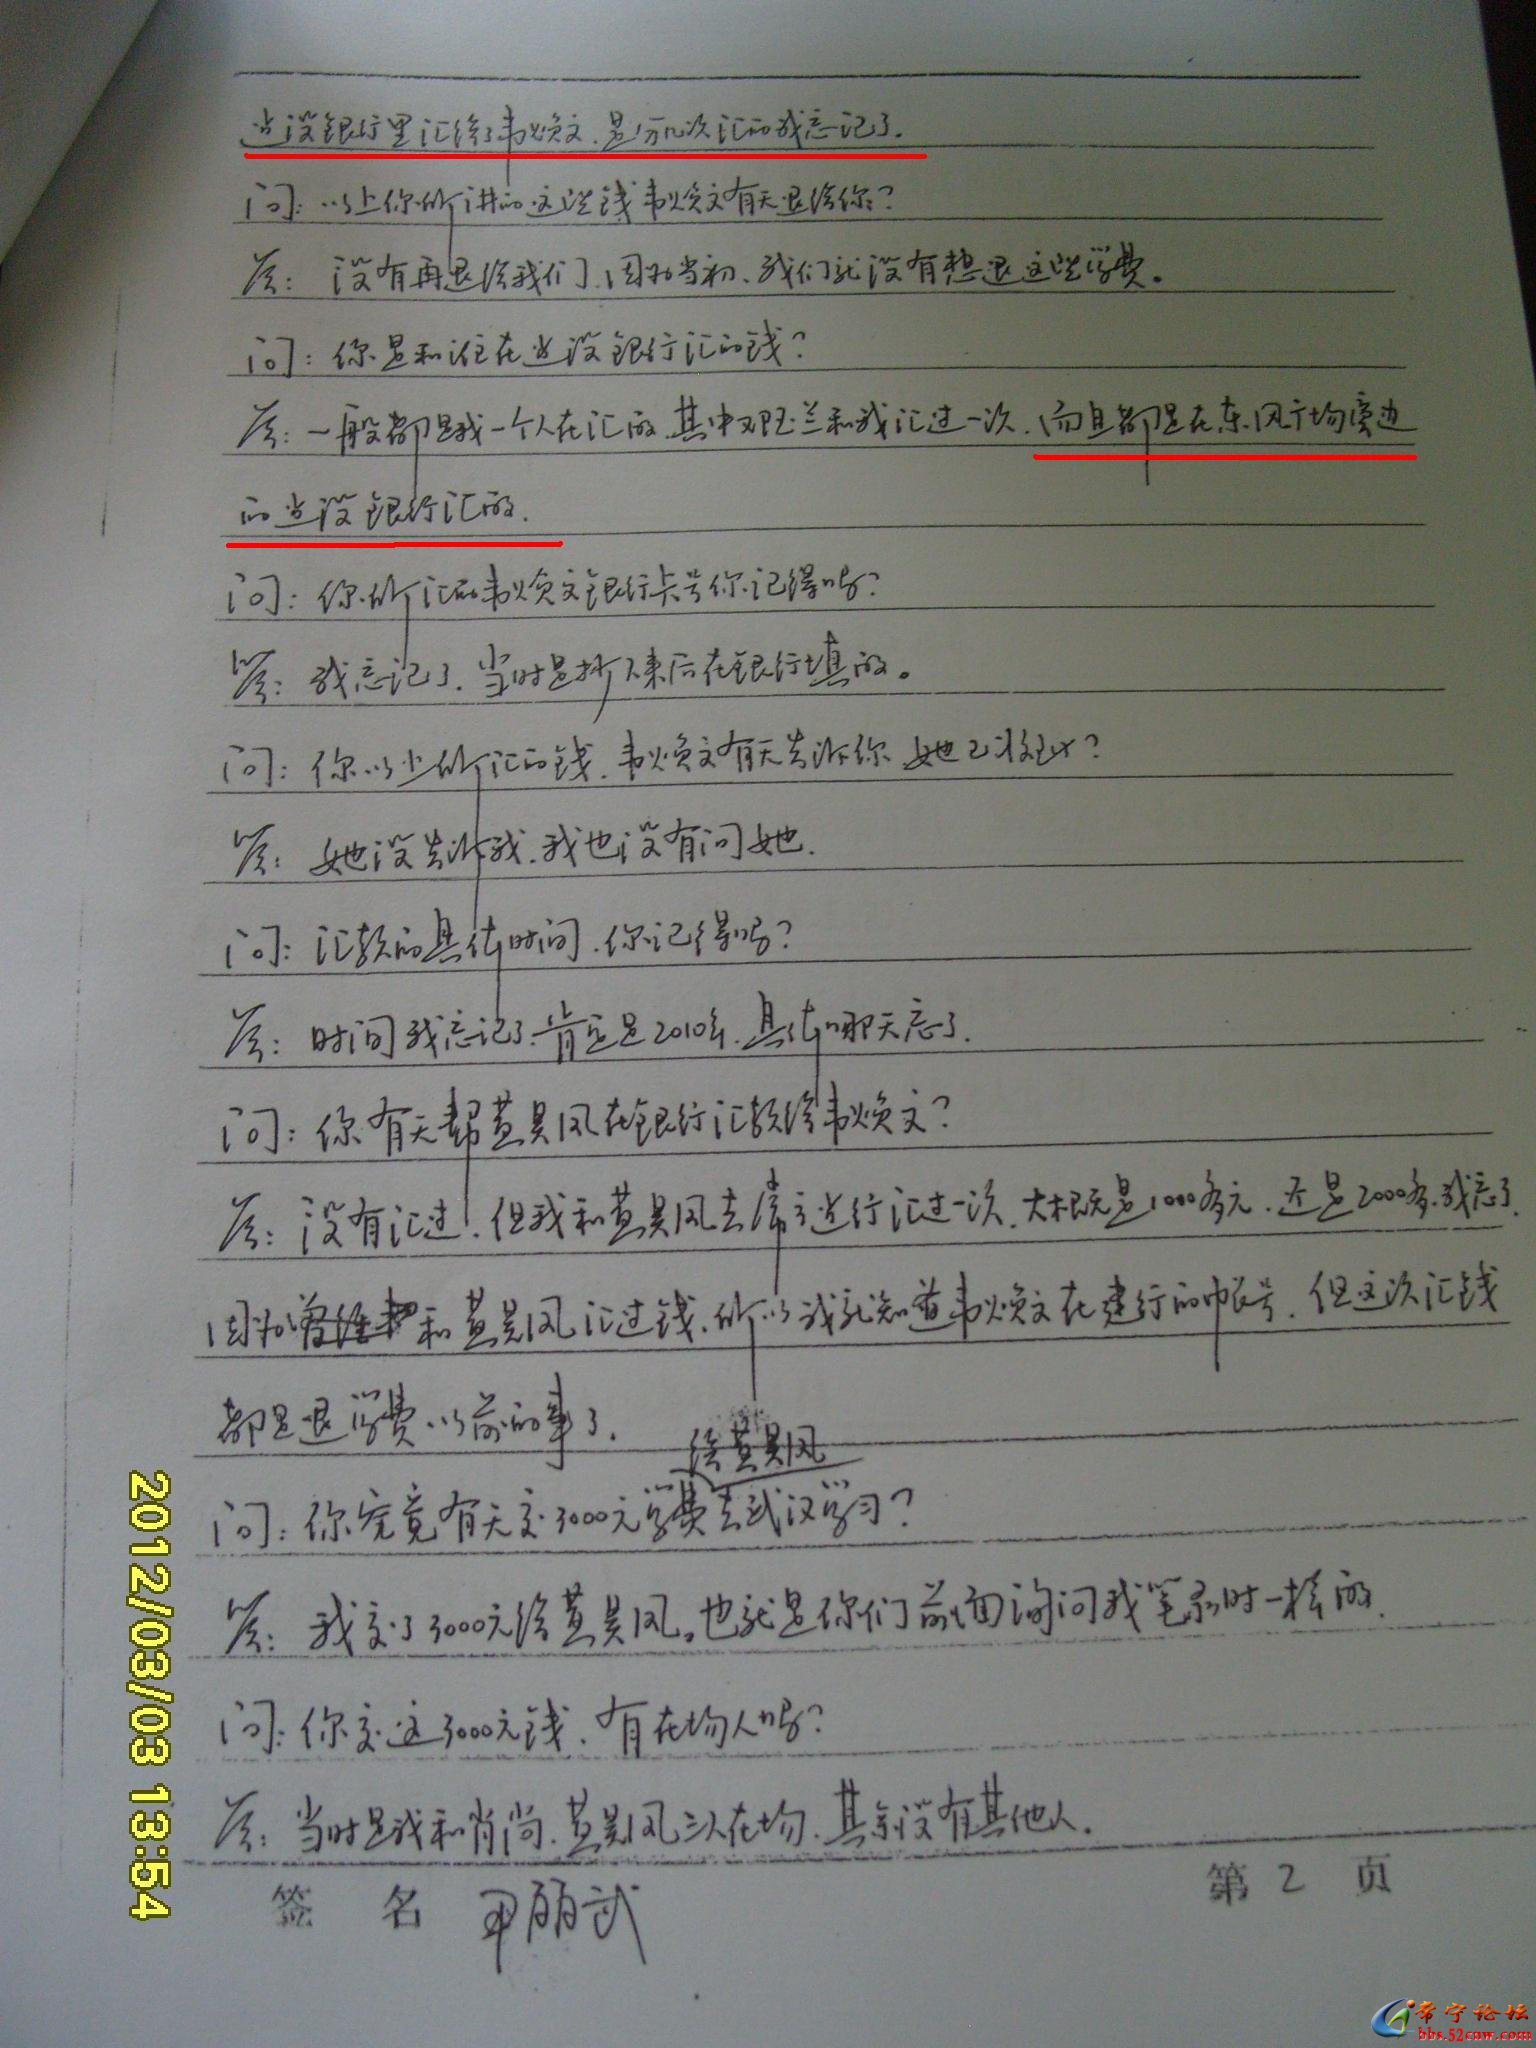 建设银行里汇给了韦焕文、是分几次汇的我忘记了.
问: 以上你所讲的这些钱韦焕文有无退给你?
答: 没有再退给我们、因为当初、我们就没有想退这些学费。
问: 你是和谁在建设银行汇的钱?
答: 一般都是我一个人在汇的、其中邓玉兰和我汇过一次、而且都是在东风广场旁边
的建设银行汇的.
问: 你所汇的韦焕文银行卡号你记得吗?
答: 我忘记了、当时是抄下来后在银行填的。
问: 你以上所汇的钱、韦焕文有无告诉你她已收到?
答: 她没告诉我、我也没有问她.
问: 汇款的具体时间、你记得吗?
答: 时间我忘记了、肯定是2010年、具体哪天忘了.
问: 你有无帮黄昊风在银行汇款给韦焕文?
答: 没有汇过、但我和黄昊风去常宁建行汇过一次、大概是1000多元、还是2000多、我忘了.
因为和黄昊风汇过钱、所以我就知道韦焕文在建行的帐号、但这次汇钱
都是退学费以前的事了.
给黄昊风
问: 你究竟有无交3000元学费去武汉学习?
答: 我交了3000元给黄昊风。也就是你们前面询问我笔录时一样的.
问: 你交这3000元钱、有在场人吗?
答: 当时是我和肖尚、黄昊风三人在场、其余没有其他人.
签 名
第 2 页
2012/03/03 13:54
常宁论坛
bbs.52cnw.com